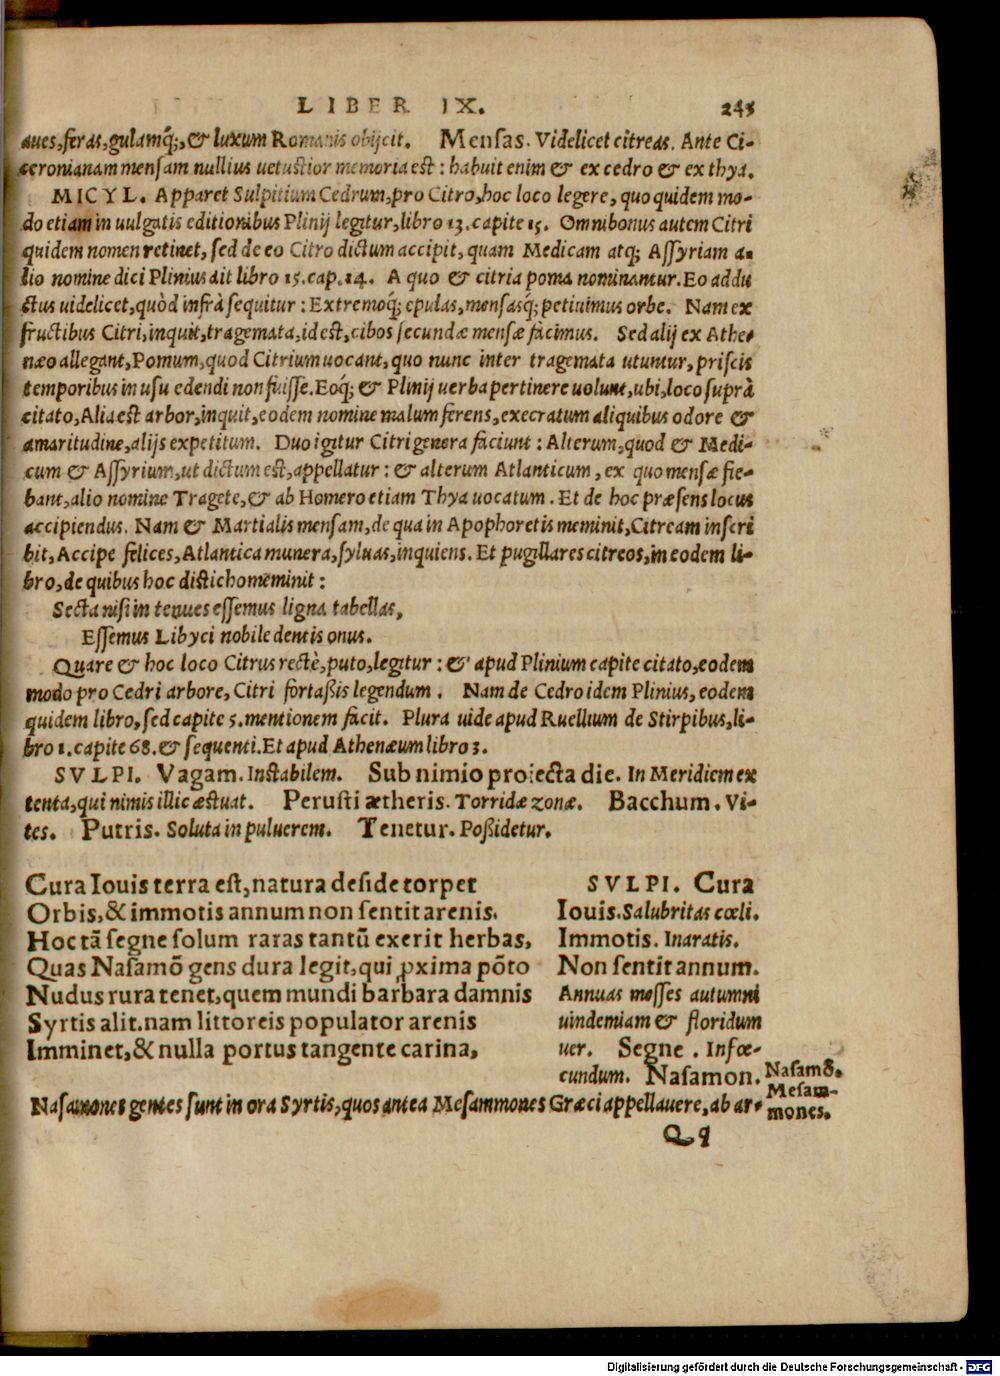 LIBER IX. 245
aues, feras, gulamq́;, & luxum Romanis obijcit. Mensas. Videlicet citreas. Ante Ci-
ceronianam mensam nullius uetustior memoria est: habuit enim & ex cedro & ex thya.
MICYL. Apparet Sulpitium Cedrum, pro Citro, hoc loco legere, quo quidem mo-
do etiam in uulgatis editionibus Plinij legitur, libro 13. capite 15. Omnibonus autem Citri
quidem nomen retinet, sed de eo Citro dictum accipit, quam Medicam atq; Assyriam a-
lio nomine dici Plinius ait libro 15. cap. 14. A quo & citria poma nominantur. Eo addu
ctus uidelicet, quòd infrà sequitur: Extremoq́; epulas, mensasq́; petiuimus orbe. Nam ex
fructibus Citri, inquit, tragemata, id est, cibos secundæ mensæ facimus. Sed alij ex Athe-
næo allegant, Pomum, quod Citrium uocant, quo nunc inter tragemata utuntur, priscis
temporibus in usu edendi non fuisse. Eoq́; & Plinij uerba pertinere uolunt, ubi, loco suprà
citato, Alia est arbor, inquit, eodem nomine malum ferens, execratum aliquibus odore &
amaritudine, alijs expetitum. Duo igitur Citri genera faciunt: Alterum, quod & Medi-
cum & Assyrium, ut dictum est, appellatur: & alterum Atlanticum, ex quo mensæ fie-
bant, alio nomine Tragete, & ab Homero etiam Thya uocatum. Et de hoc præsens locus
accipiendus. Nam & Martialis mensam, de qua in Apophoretis meminit, Citream inscri
bit, Accipe felices, Atlantica munera, syluas, inquiens. Et pugillares citreos, in eodem li-
bro, de quibus hoc distichō meminit:
Secta nisi in tenues essemus ligna tabellas,
Essemus Libyci nobile dentis onus.
Quare & hoc loco Citrus rectè, puto, legitur: & apud Plinium capite citato, eodem
modo pro Cedri arbore, Citri fortaßis legendum. Nam de Cedro idem Plinius, eodem
quidem libro, sed capite 5. mentionem facit. Plura uide apud Ruellium de Stirpibus, li-
bro 1. capite 68. & sequenti. Et apud Athenæum libro 3.
SVLPI. Vagam. Instabilem. Sub nimio proiecta die. In Meridiem ex
tenta, qui nimis illic æstuat. Perusti ætheris. Torridæ zonæ. Bacchum. Vi-
tes. Putris. Soluta in puluerem. Tenetur. Poßidetur.
Cura Iouis terra est, natura deside torpet
Orbis, & immotis annum non sentit arenis.
Hoc tā segne solum raras tantū exerit herbas,
Quas Nasamō gens dura legit, qui ꝓxima pōto
Nudus rura tenet, quem mundi barbara damnis
Syrtis alit. nam littoreis populator arenis
Imminet, & nulla portus tangente carina,
SVLPI. Cura
Iouis. Salubritas cœli.
Immotis. Inaratis.
Non sentit annum.
Annuas messes autumni
uindemiam & floridum
uer. Segne. Infœ-
cundum. Nasamon.
Nasamones gentes sunt in ora Syrtis, quos antea Mesammones Græci appellauere, ab ar-
Nasamō.
Mesam-
mones.
Qq
Digitalisierung gefördert durch die Deutsche Forschungsgemeinschaft - DFG